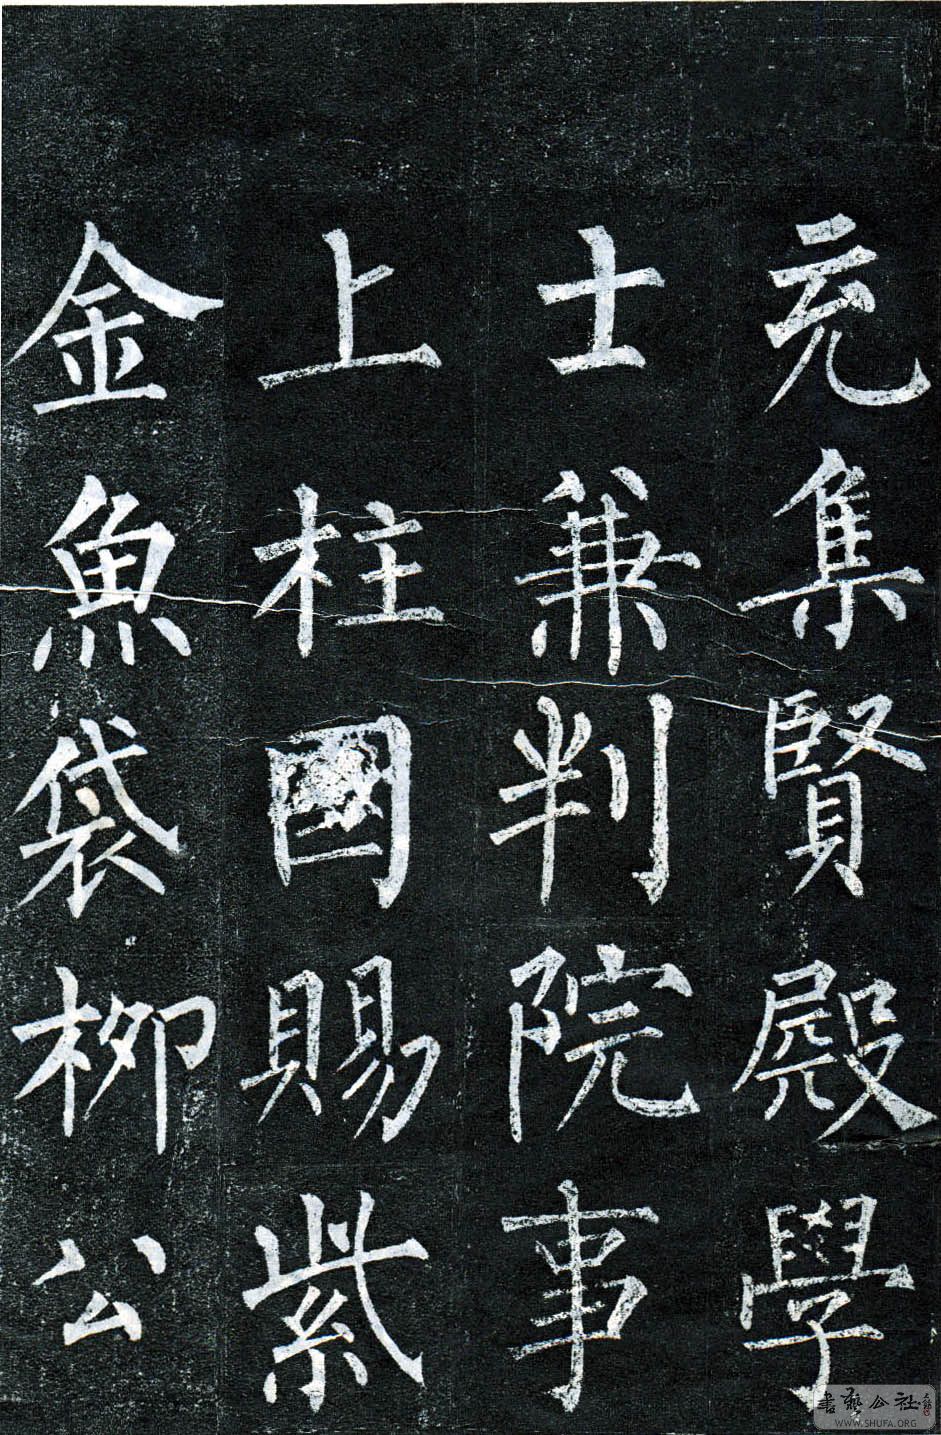 充集賢殿學
士兼判院事
上柱國賜紫
金魚袋柳公
書藝公社
WWW.SHUFA.ORG